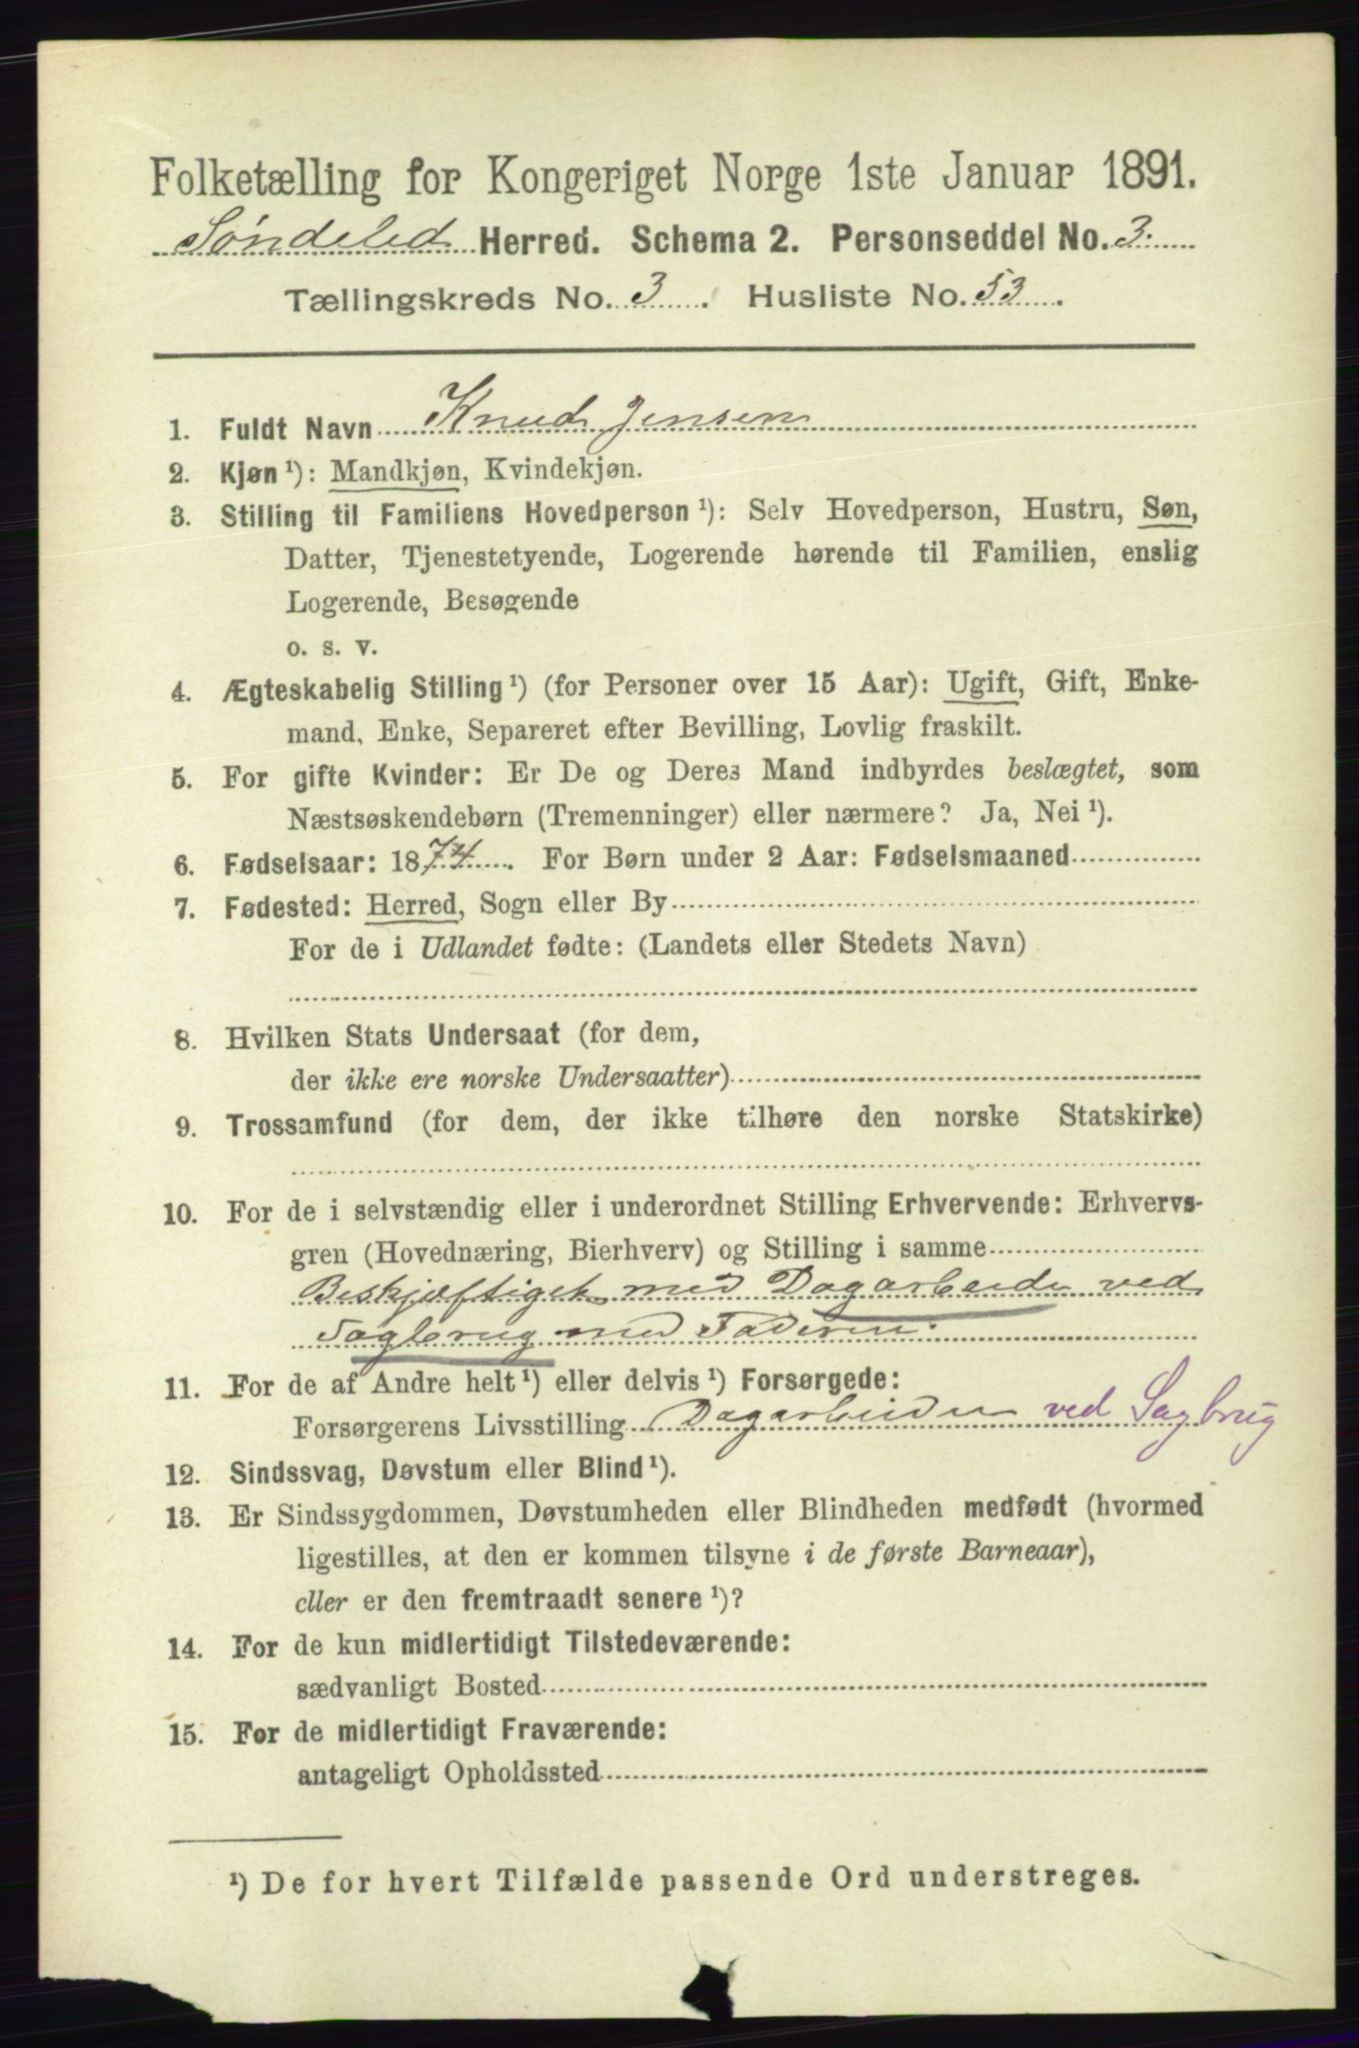 Folketælling for Kongeriget Norge 1ste Januar 1891.
Søndeled Herred. Schema 2. Personseddel No. 3.
Tællingskreds No. 3. Husliste No. 53.
1. Fuldt Navn Knud Jensen
2. Kjøn ¹): Mandkjøn, Kvindekjøn.
3. Stilling til Familiens Hovedperson ¹): Selv Hovedperson, Hustru, Søn,
Datter, Tjenestetyende, Logerende hørende til Familien, enslig
Logerende, Besøgende
o. s. v.
4. Ægteskabelig Stilling ¹) (for Personer over 15 Aar): Ugift, Gift, Enke-
mand, Enke, Separeret efter Bevilling, Lovlig fraskilt.
5. For gifte Kvinder: Er De og Deres Mand indbyrdes beslægtet, som
Næstsøskendebørn (Tremenninger) eller nærmere? Ja, Nei ¹).
6. Fødselsaar: 1874. For Børn under 2 Aar: Fødselsmaaned
7. Fødested: Herred, Sogn eller By
For de i Udlandet fødte: (Landets eller Stedets Navn)
8. Hvilken Stats Undersaat (for dem,
der ikke ere norske Undersaatter)
9. Trossamfund (for dem, der ikke tilhøre den norske Statskirke)
10. For de i selvstændig eller i underordnet Stilling Erhvervende: Erhvervs-
gren (Hovednæring, Bierhverv) og Stilling i samme
Beskjæftiget med Dagarbeide ved
Sagbrug med Faderen.
11. For de af Andre helt ¹) eller delvis ¹) Forsørgede:
Forsørgerens Livsstilling Dagarbeider ved Sagbrug
12. Sindssvag, Døvstum eller Blind ¹).
13. Er Sindssygdommen, Døvstumheden eller Blindheden medfødt (hvormed
ligestilles, at den er kommen tilsyne i de første Barneaar),
eller er den fremtraadt senere ¹)?
14. For de kun midlertidigt Tilstedeværende:
sædvanligt Bosted
15. For de midlertidigt Fraværende:
antageligt Opholdssted
¹) De for hvert Tilfælde passende Ord understreges.